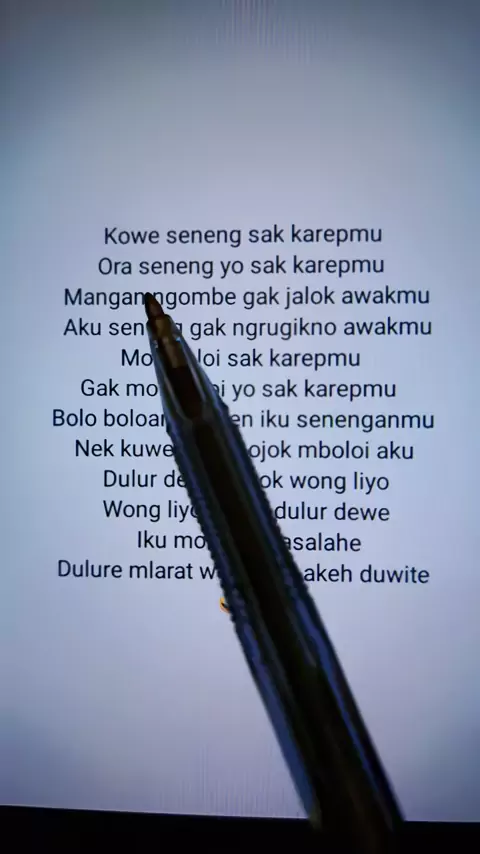 Kowe seneng sak karepmu
Ora seneng yo sak karepmu
Mangan ngombe gak jalok awakmu
Aku seneng gak ngrugikno awakmu
sak karepmu
Gak yo sak karepmu
Bolo iku senenganmu
Nek mboloi aku
Dulur wong liyo
Wong dulur dewe
Iku
Dulure mlarat akeh duwite